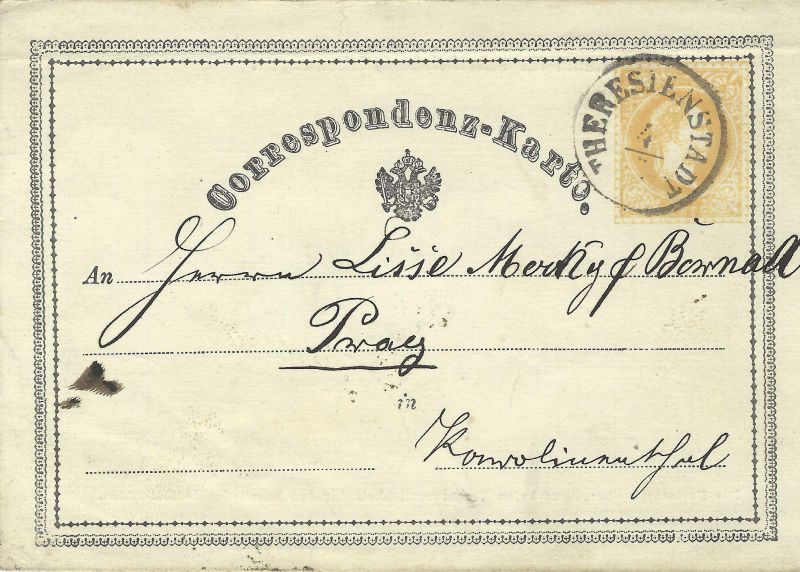 Correspondenz-Karte.
THERESIENSTADT
4
An Herrn Lisse
Prag
in
Karolinenthal